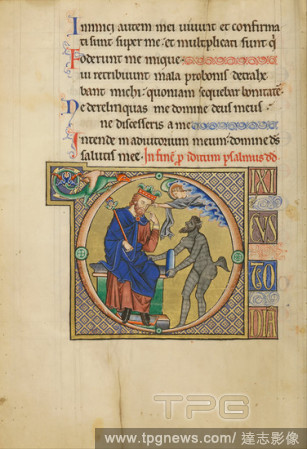 Inimici autem mei vivunt et confirma
ti sunt super me: et multiplicati sunt q
oderunt me inique.
ui retribuunt mala pro bonis detrahe
bant michi: quoniam sequebar bonitatē.
Ne derelinquas me domine deus meus
ne discesseris a me
Intende in adiutorium meum domine ds
salutis mee. In finē p iditun psalmus dd
D IXI
CUS
TO
DIA
TPG
www.tpgnews.com/ 達志影像